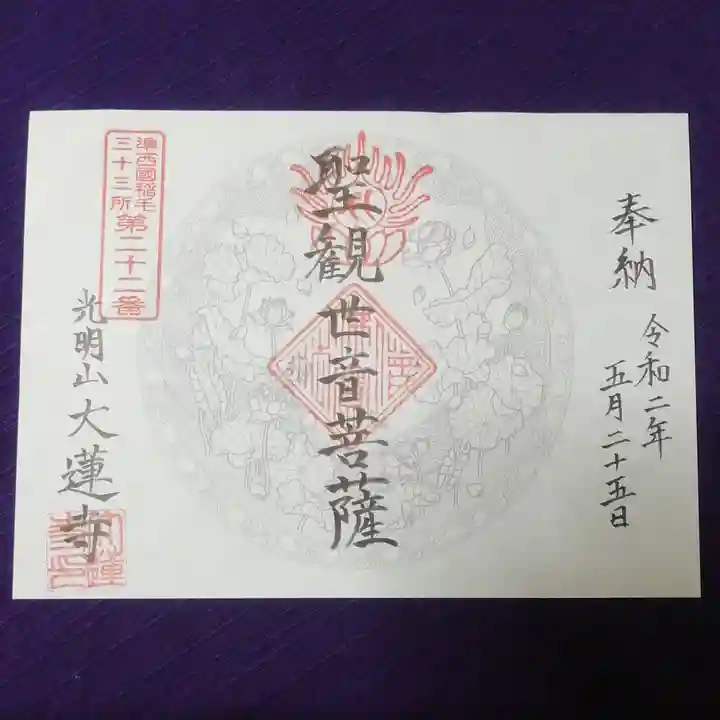 奉納
令和二年
五月二十五日
聖観世音菩薩
準西國稲毛
三十三所
第二十二番
光明山大蓮寺